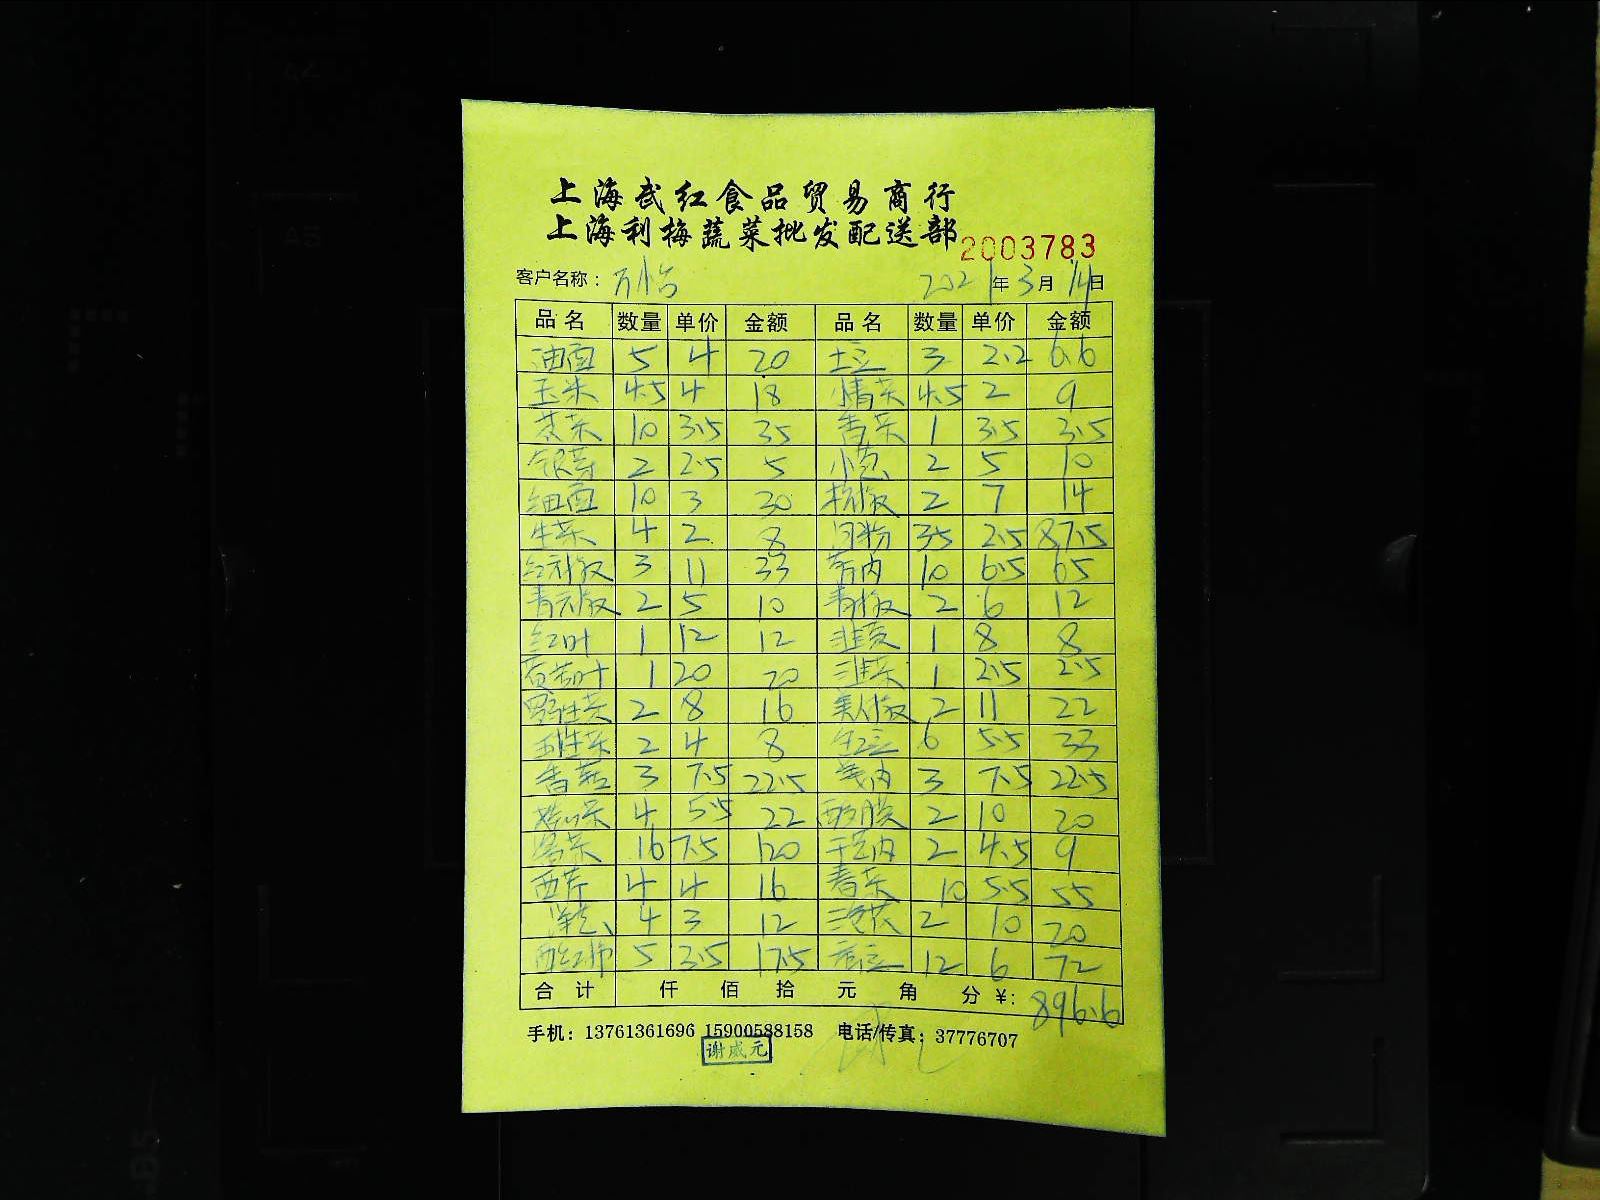 上海武红食品贸易商行
上海利梅蔬菜批发配送部 2003783
客户名称: 万怡 2021年3月14日
品名 数量 单价 金额 品名 数量 单价 金额
油面 5 4 20 土豆 3 2.2 6.6
玉米 4.5 4 18 小青菜 4.5 2 9
10 3.5 35 香菜 1 3.5 3.5
银芽 2 2.5 5 小葱 2 5 10
细面 10 3 30 杭椒 2 7 14
生菜 4 2 8 河粉 35 2.5 87.5
红元椒 3 11 33 10 6.5 65
青元椒 2 5 10 青椒 2 6 12
红叶 1 12 12 韭黄 1 8 8
1 20 20 韭菜 1 2.5 2.5
2 8 16 美人椒 2 11 22
2 4 8 6 5.5 33
香菇 3 7.5 22.5 3 7.5 22.5
4 5.5 22 2 10 20
16 7.5 120 2 4.5 9
西芹 4 4 16 10 5.5 55
洋葱 4 3 12 2 10 20
西红柿 5 3.5 17.5 12 6 72
合计 仟 佰 拾 元 角 分 ¥: 896.6
手机: 13761361696 15900588158 电话/传真: 37776707
谢成元